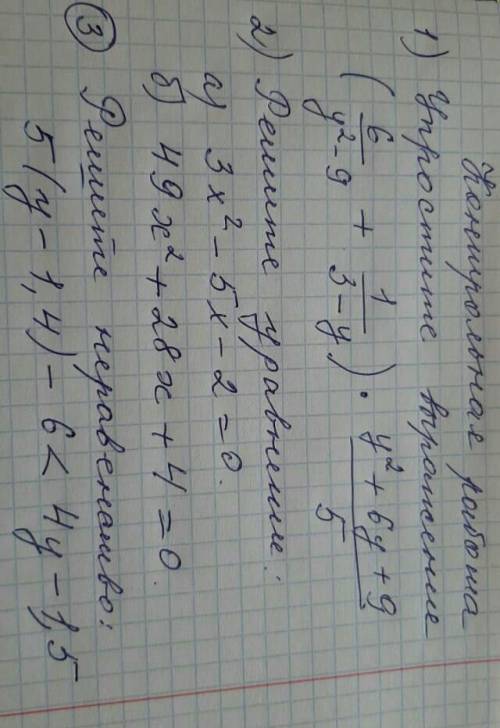 Контрольная работа
1) Упростите выражение
(6/(y² - 9) + 1/(3 - y)) · (y² + 6y + 9)/5
2) Решите уравнение:
а) 3x² - 5x - 2 = 0.
б) 49x² + 28x + 4 = 0.
③ Решите неравенство:
5(y - 1,4) - 6 < 4y - 1,5